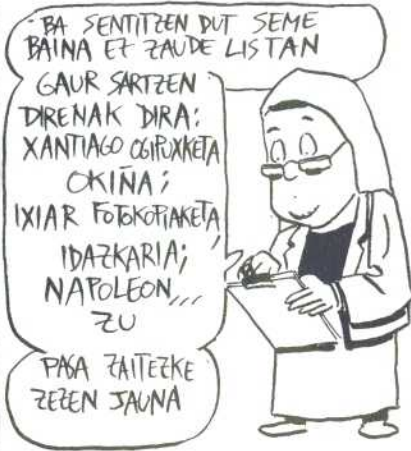 BA SENTITZEN DUT SEME
BAINA EZ ZAUDE LISTAN
GAUR SARTZEN
DIRENAK DIRA:
XANTIAGO OGIPUXKETA
OKIÑA;
IXIAR FOTOKOPIAKETA
IDAZKARIA;
NAPOLEON,,,
ZU
PASA ZAITEZKE
ZEZEN JAUNA